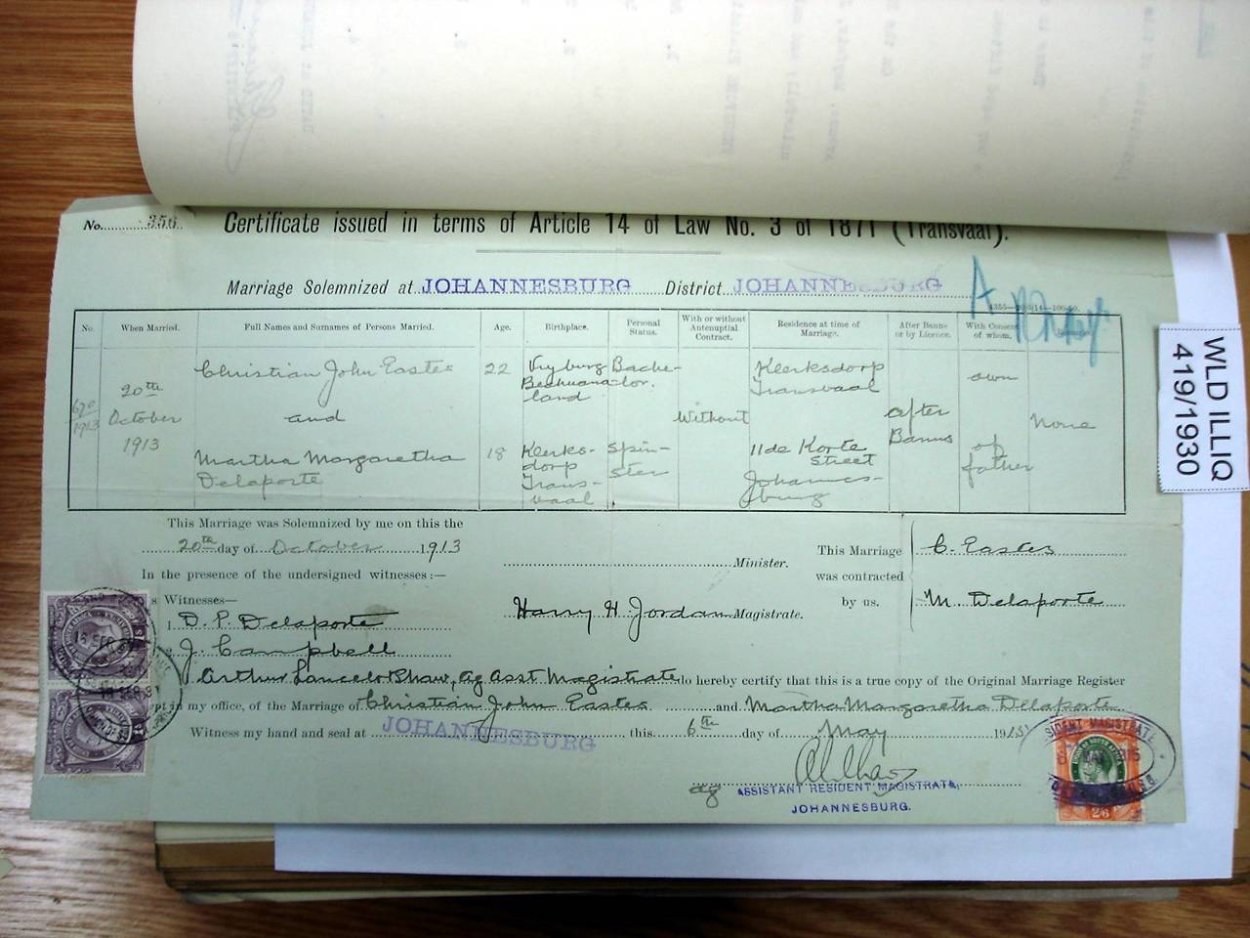 No. 356
Certificate issued in terms of Article 14 of Law No. 3 of 1871 (Transvaal).
Marriage Solemnized at JOHANNESBURG District JOHANNESBURG
A
No. When Married. Full Names and Surnames of Persons Married. Age. Birthplace. Personal Status. With or without Antenuptial Contract. Residence at time of Marriage. After Banns or by Licence. With Consent of whom.
670/1913
20th October 1913
Christian John Eastes 22 Vryburg Bechuanaland Bachelor. Klerksdorp Transvaal own
and Without after Banns None
Martha Margaretha Delaporte 18 Klerksdorp Transvaal Spinster 11 de Korte Street Johannesburg of father
This Marriage was Solemnized by me on this the
20th day of October 1913
In the presence of the undersigned witnesses:—
Minister.
This Marriage was contracted by us.
C. Eastes
M. Delaporte
Witnesses—
1. D. P. Delaporte
Harry H. Jordan Magistrate.
J. Campbell
I Arthur Lancelot Shaw, Ag Asst Magistrate do hereby certify that this is a true copy of the Original Marriage Register
kept in my office, of the Marriage of Christian John Eastes and Martha Margaretha Delaporte
Witness my hand and seal at JOHANNESBURG this 6th day of May 1915
ag ASSISTANT RESIDENT MAGISTRATE,
JOHANNESBURG.
2/6
WLD ILLIQ
419/1930